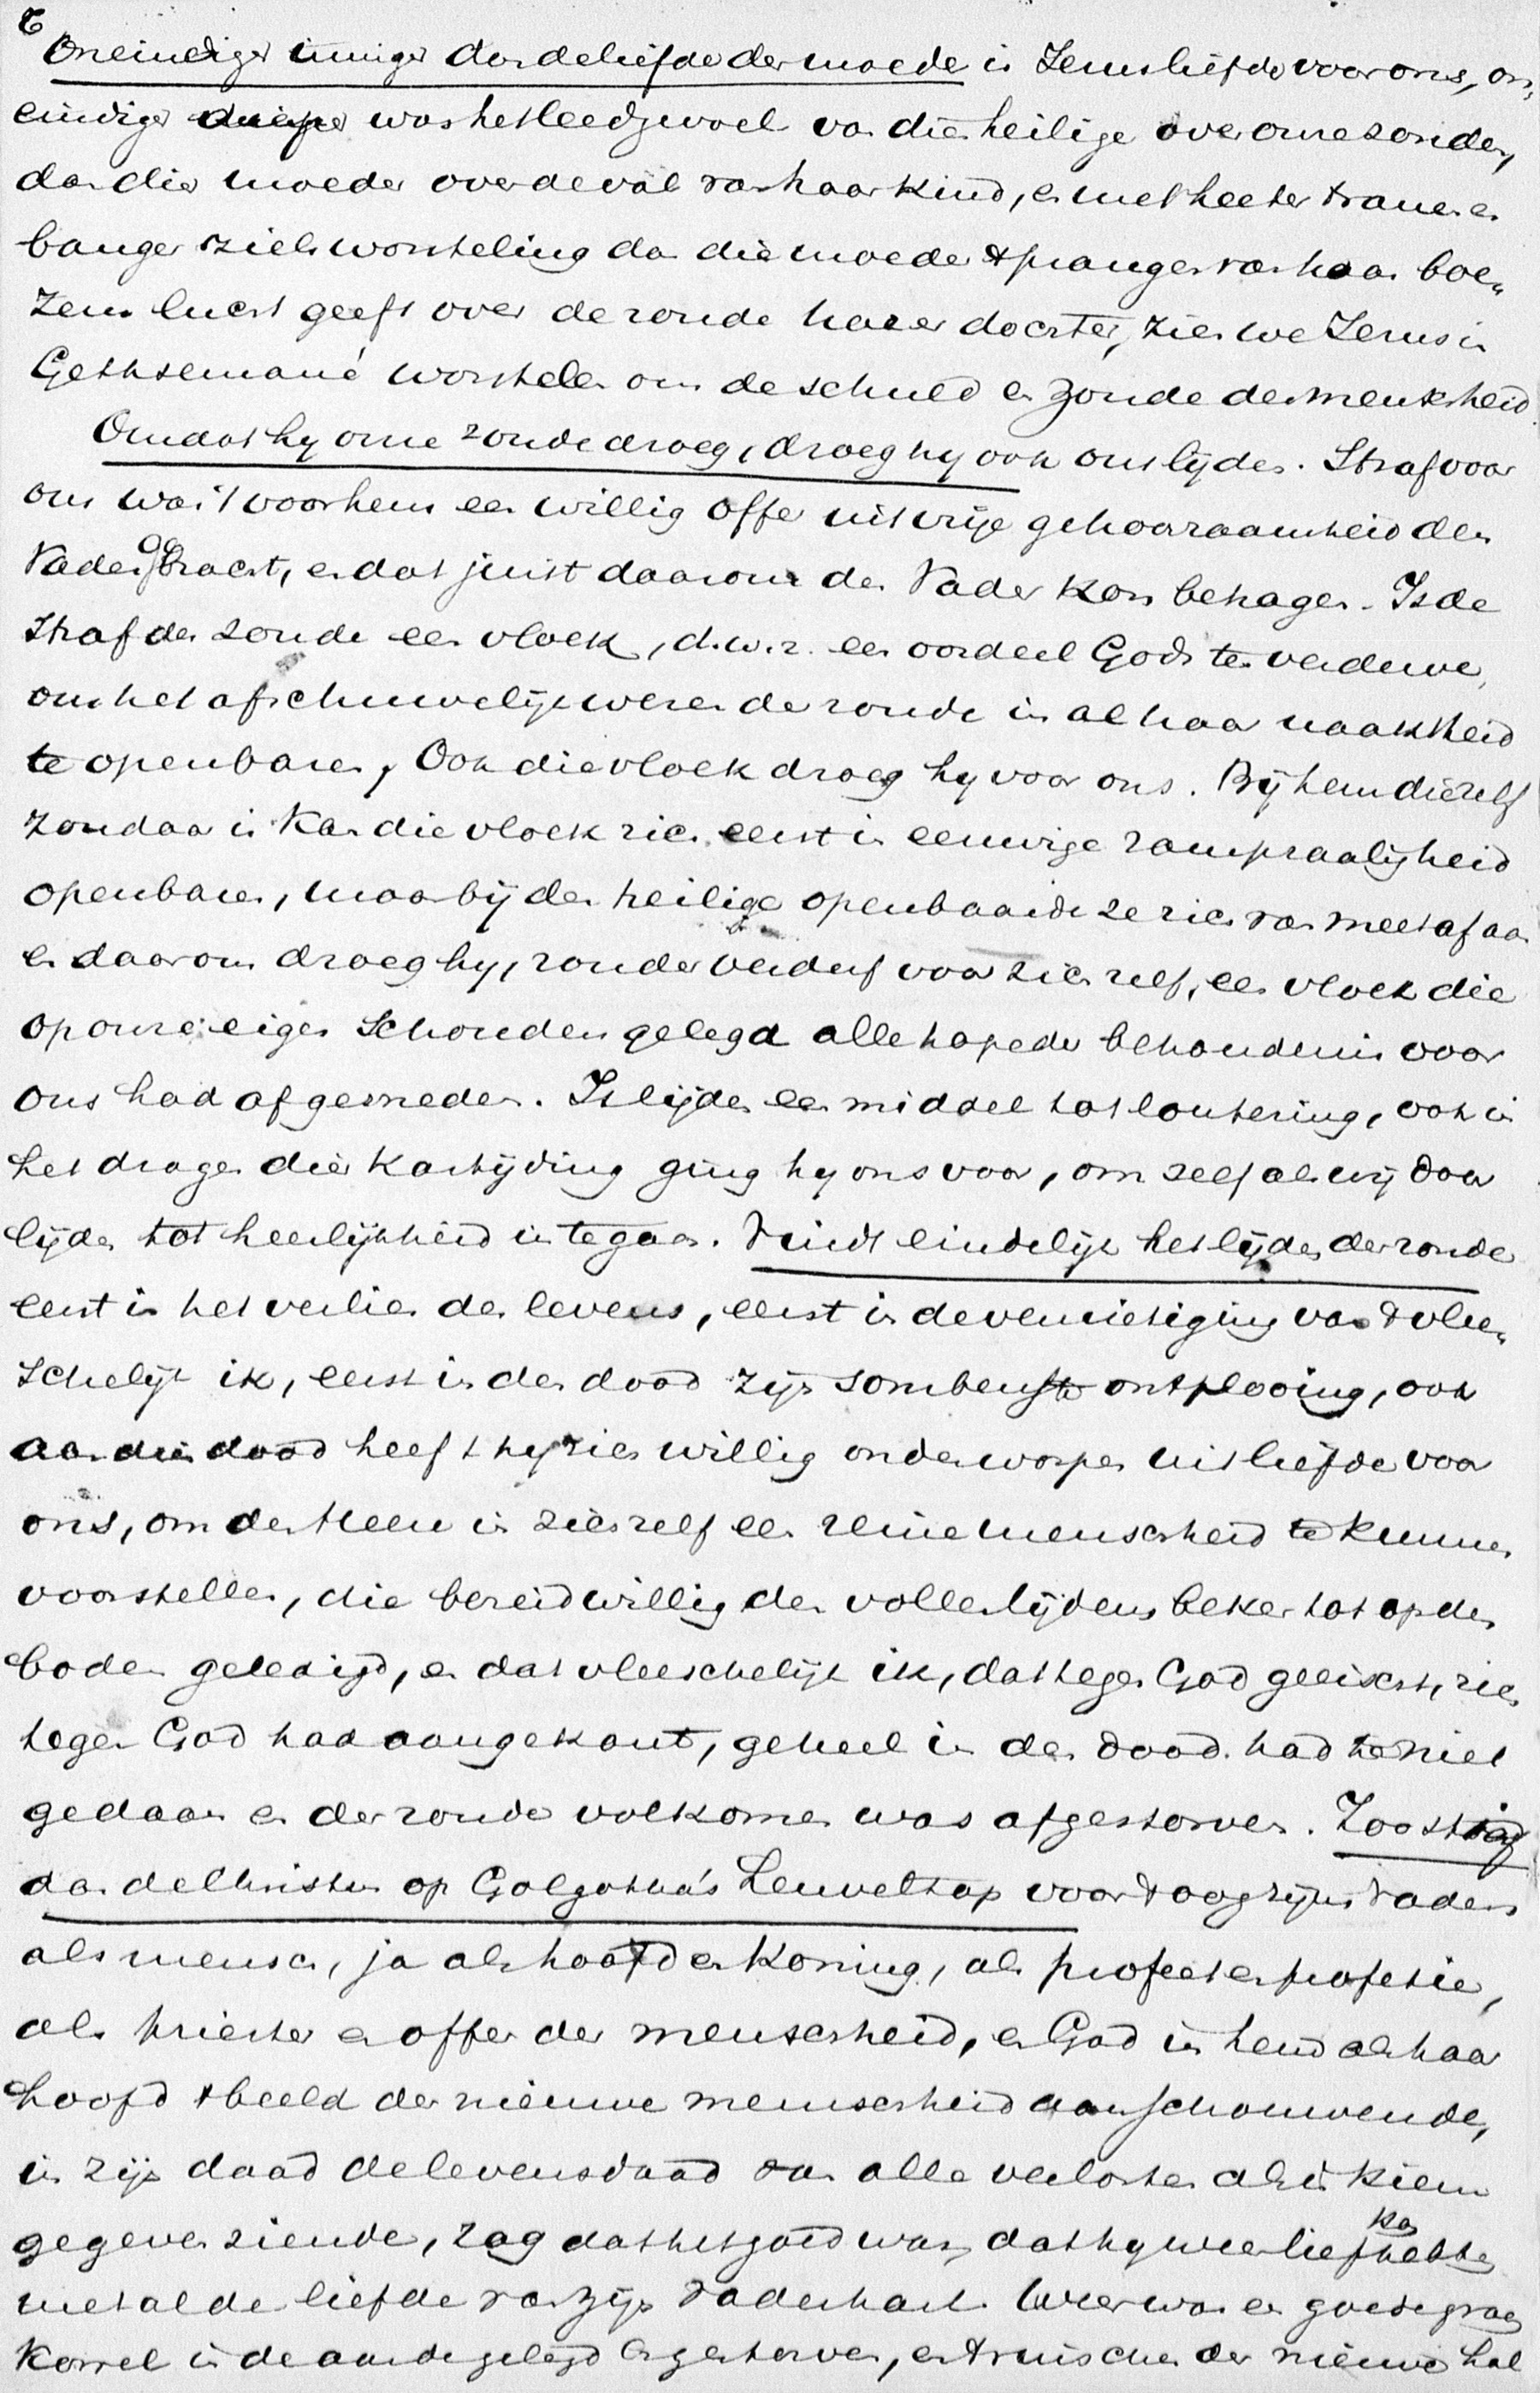 Oneindiger inniger dan de liefde der moeder is Jezus liefde voor ons, on„
eindiger dieper was het leedgevoel van dien heilige over onze zonden,
dan die moeder over de val van haar kind, en met heeter tranen en
banger zielsworsteling dan die moeder 't prangen van haar boe„
zem lucht geeft over de zonde harer dochter, zien we Jezus in
Gethsemané worstelen om de schuld en zonde der menschheid
Omdat hij onze zonde droeg, droeg hij ook ons lijden. Straf voor
ons was 't voor hem een willig offer uit vrije gehoorzaamheid den
Vader gebracht, en dat juist daarom den Vader kon behagen. Is de
straf der zonde een vloek, d.w.z. een oordeel Gods ten verderve,
om het afschuwelijk wezen der zonde in al haar naaktheid
te openbaren, Ook die vloek droeg hij voor ons. Bij hem die zelf
zondaar is kan die vloek zich eerst in eeuwige rampzaligheid
openbaren, maar bij den heilige openbaarde ze zich van meet af aan
en daarom droeg hij, zonder verderf voor zich zelf, een vloek die
op onze eigen schouders gelegd alle hope der behoudenis voor
ons had afgesneden. Is lijden een middel tot loutering, ook in
het dragen dier kastijding ging hij ons voor, om zelf als wij door
lijden tot heerlijkheid in te gaan. Vindt eindelijk het lijden der zonde
eerst in het verlies des levens, eerst in de vernietiging van 't vlee„
schelijk ik, eerst in den dood zijn somberste ontplooiing, ook
aan dien dood heeft hij zich willig onderworpen uit liefde voor
ons, om den Heere in zich zelf een reine menschheid te kunnen
voorstellen, die bereidwillig den vollen lijdensbeker tot op den
bodem geledigd, en dat vleeschelijk ik, dat tegen God geëischt, zich
tegen God had aangekant, geheel in den dood had te niet
gedaan en der zonde volkomen was afgestorven. Zoo stierf
dan de Christus op Golgotha's heuveltop voor 't oog zijns Vaders
als mensch, ja als hoofd en koning, als profeet en profetie,
als priester en offer der menschheid, en God in hem als haar
hoofd 't beeld der nieuwe menschheid aanschouwende,
in zijn daad de levensdaad van alle verlosten als in kiem
gegeven ziende, zag dat het goed was, dat hij weer liefhebben kon
met al de liefde van zijn vaderhart. Weer was een goede graan
korrel in de aarde gelegd en gestorven, en ruischen der nieuwe hal